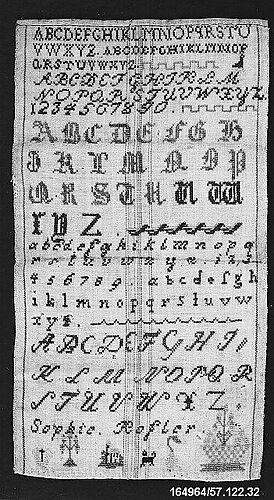 ABCDEFGHIKLMNOPQRSTU
VVWXYZ. ABCDEFGHIKLMNOP
QRSTUVWXYZ
ABCDEFGHIKLM
NOPQRSTUVWXYZ
1234567890
ABCDEFGH
IKLMNOP
QRSTUW
XYZ.
abcdefghiklmnopq
rstuvwxyz. 123
456789. abcdefgh
iklmnopqrstuvw
xyz.
ABCDEFGHI
KLMNOPQR
STUVWXYZ
Sophie Rofler
164964/57.122.32